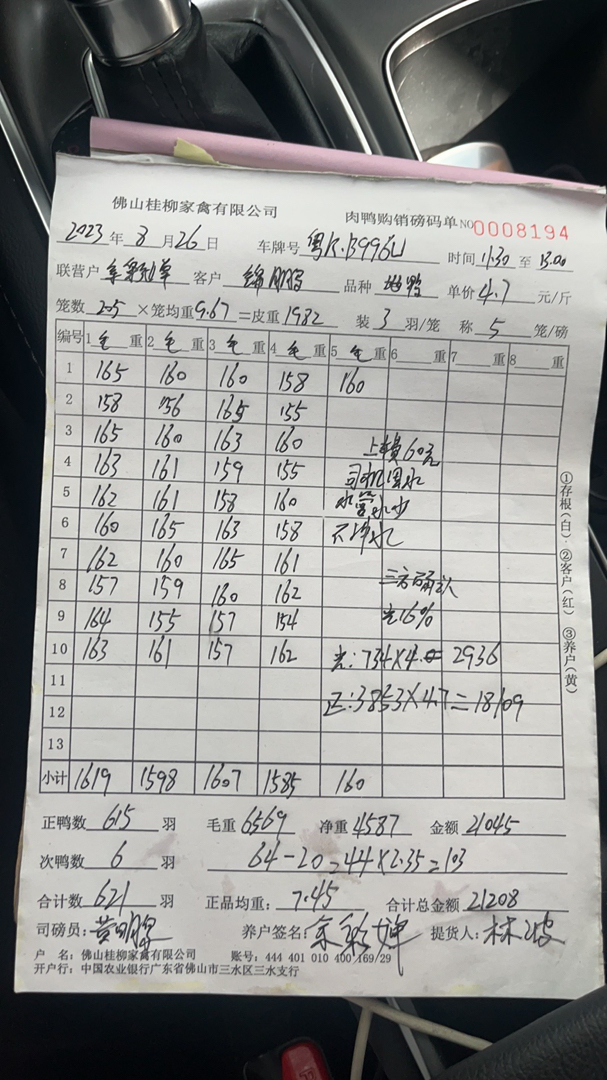 佛山桂柳家禽有限公司 肉鸭购销磅码单 NO 0008194
2023年 8月26日 车牌号 粤K·B996U 时间 11:30 至 13:00
联营户 客户 品种 单价 4.7 元/斤
笼数 205 ×笼均重 9.67 =皮重 1982 装 3 羽/笼 称 5 笼/磅
编号 1 毛 重 2 毛 重 3 毛 重 4 毛 重 5 毛 重 6 重 7 重 8 重
1 165 160 160 158 160
2 158 156 165 155
3 165 160 163 160 上车费60元
4 163 161 159 155 司机
5 162 161 158 160 水
6 160 165 163 158 水
7 162 160 165 161
8 157 159 160 162 三方确认
9 164 155 157 154 16%
10 163 161 157 162 :734×4.0=2936
11 正:3853×4.7=18109
12
13
小计 1619 1598 1607 1585 160
正鸭数 615 羽 毛重 6569 净重 4587 金额 21045
次鸭数 6 羽 64-20=44×2.35=103
合计数 621 羽 正品均重: 7.45 合计总金额 21208
司磅员: 养户签名: 提货人:
户 名: 佛山桂柳家禽有限公司 账号: 444 401 010 400 169/29
开户行: 中国农业银行广东省佛山市三水区三水支行
①存根(白)·②客户(红) ③养户(黄)